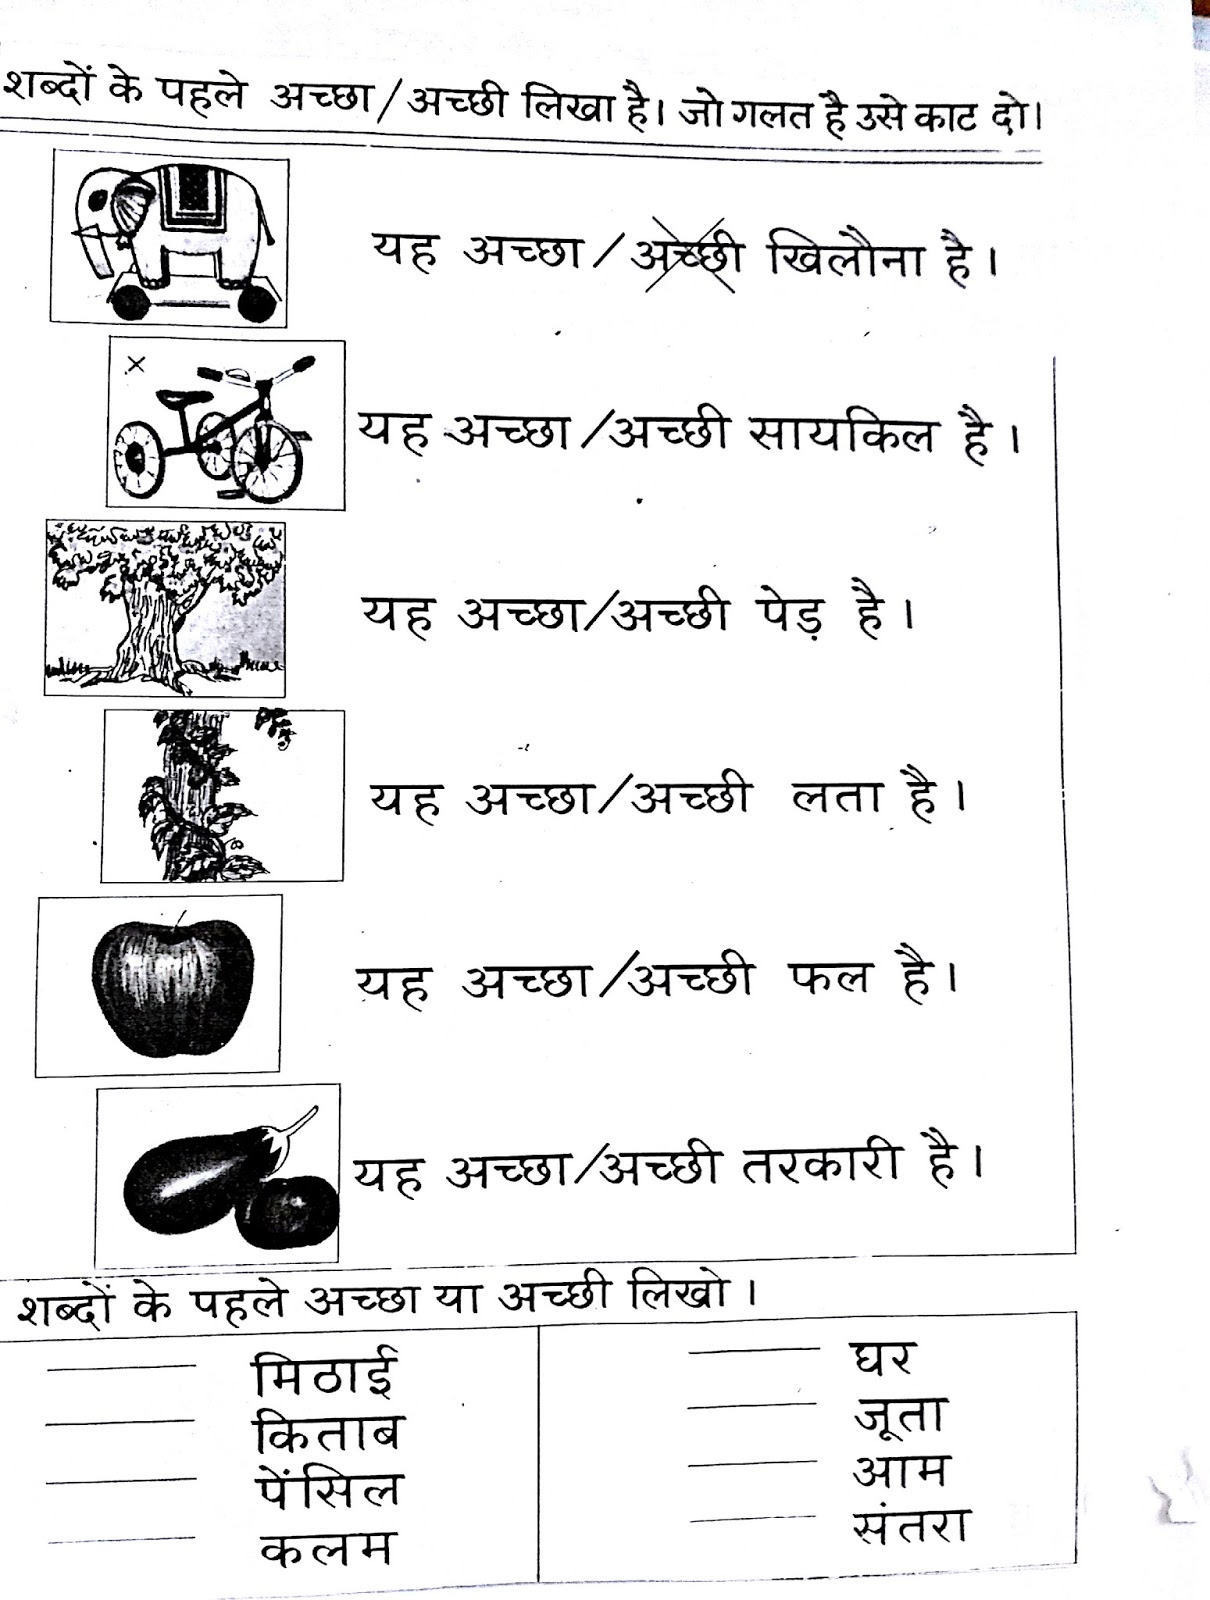 शब्दों के पहले अच्छा/अच्छी लिखा है। जो गलत है उसे काट दो।
यह अच्छा/अच्छी खिलौना है।
यह अच्छा/अच्छी सायकिल है।
यह अच्छा/अच्छी पेड़ है।
यह अच्छा/अच्छी लता है।
यह अच्छा/अच्छी फल है।
यह अच्छा/अच्छी तरकारी है।
शब्दों के पहले अच्छा या अच्छी लिखो।
मिठाई
किताब
पेंसिल
कलम
घर
जूता
आम
संतरा